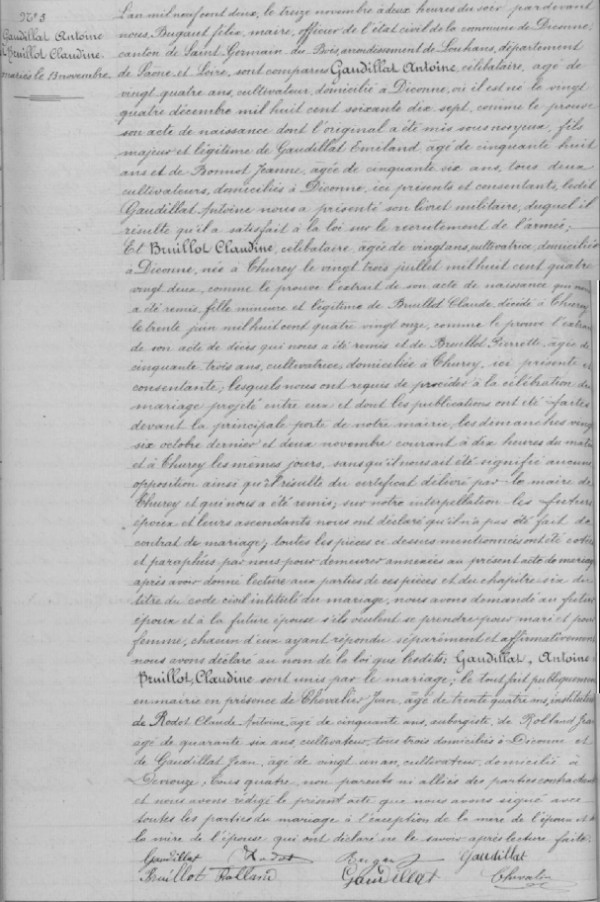 N° 3
Gaudillat Antoine
et Bruillot Claudine.
mariés le 13 novembre
L'an mil neuf cent deux, le treize novembre à deux heures du soir, pardevant
nous, Bugaut felix, maire, officier de l'état civil de la commune de Diconne,
canton de Saint Germain du Bois, arrondissement de Louhans, département
de Saône et Loire, sont comparus Gaudillat Antoine, célibataire, âgé de
vingt quatre ans, cultivateur, domicilié à Diconne, où il est né le vingt
quatre décembre mil huit cent soixante dix sept, comme le prouve
son acte de naissance dont l'original a été mis sous nos yeux, fils
majeur et légitime de Gaudillat Emiland, âgé de cinquante huit
ans et de Bonnot Jeanne, âgée de cinquante six ans, tous deux
cultivateurs, domiciliés à Diconne, ici présents et consentants, ledit
Gaudillat Antoine nous a présenté son livret militaire, duquel il
résulte qu'il a satisfait à la loi sur le recrutement de l'armée;
Et Bruillot Claudine, célibataire, âgée de vingt ans, cultivatrice, domiciliée
à Diconne, née à Thurey le vingt trois juillet mil huit cent quatre
vingt deux, comme le prouve l'extrait de son acte de naissance qui nous
a été remis, fille mineure et légitime de Bruillot Claude, décédé à Thurey
le trente juin mil huit cent quatre vingt onze, comme le prouve l'extrait
de son acte de décès qui nous a été remis et de Bruillot Pierrette, âgée de
cinquante trois ans, cultivatrice, domiciliée à Thurey, ici présente et
consentante; lesquels nous ont requis de procéder à la célébration du
mariage projeté entre eux et dont les publications ont été faites
devant la principale porte de notre mairie, les dimanches vingt
six octobre dernier et deux novembre courant à dix heures du matin
et à Thurey les mêmes jours, sans qu'il nous ait été signifié aucune
opposition ainsi qu'il résulte du certificat délivré par le maire de
Thurey et qui nous a été remis; sur notre interpellation les futurs
époux et leurs ascendants nous ont déclaré qu'il n'a pas été fait de
contrat de mariage; toutes les pièces ci dessus mentionnées ont été cotées
et paraphées par nous pour demeurer annexées au présent acte de mariage
après avoir donné lecture aux parties de ces pièces et du chapitre six du
titre du code civil intitulé du mariage, nous avons demandé au futur
époux et à la future épouse s'ils veulent se prendre pour mari et pour
femme, chacun d'eux ayant répondu séparément et affirmativement
nous avons déclaré au nom de la loi que lesdits: Gaudillat, Antoine
Bruillot, Claudine sont unis par le mariage; le tout fait publiquement
en mairie en présence de Chevalier Jean, âgé de trente quatre ans, instituteur
de Rodot Claude Antoine, âgé de cinquante ans, aubergiste, de Rolland Jean
âgé de quarante six ans, cultivateur, tous trois domiciliés à Diconne et
de Gaudillat Jean, âgé de vingt un an, cultivateur, domicilié à
Devrouze, tous quatre, non parents ni alliés des parties contractantes
et nous avons rédigé le présent acte que nous avons signé avec
toutes les parties du mariage à l'exception de la mère de l'époux et de
la mère de l'épouse qui ont déclaré ne le savoir après lecture faite.
Gaudillat Rodot Gaudillat
Bruillot Rolland Gaudillat Chevalier